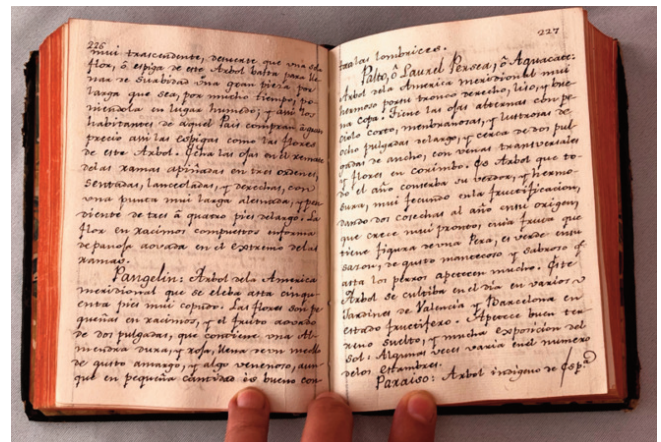 226
mui trascendente, demuerte que una sola
flor, ó espiga de este Arbol basta para lle
nar de suabidad una gran pieza por
larga que sea, por mucho tiempo, po
niendola en lugar humedo; y aun los
habitantes de aquel Pais compran á gran
precio assi las espigas como las flores
de este Arbol. Echa las ojas en el remate
delas ramas apiñadas en tres ordenes,
sentadas, lanceoladas, y derechas, con
una punta mui larga alesnada, y pen
diente de tres á quatro pies delargo. La
flor en racimos compuestos enforma
depanoja aovada en el extremo delas
ramas.
Pangelin: Arbol dela America
meridional que se eleba asta cinqu
enta pies mui copudo. Las flores son pe
queñas en racimos, y el fruto aovado
de dos pulgadas, que contiene una Al
mendra dura, y roja, llena deun meollo
de gusto amargo, y algo venenoso, aun
que en pequeña cantidad és bueno con
227
tra las lombrices.
Palto, ó Laurel Persea, ó Aguacate:
Arbol dela America meridional mui
hermoso porte tronco derecho, liso, y bue
na copa. Tiene las ojas alternas con pe
ciolo corto, membranosas, y lustrosas de
ocho pulgadas delargo, y cerca dedos pul
gadas de ancho, con venas transversales
y flores en corimbo. Es Arbol que to
do el año conserba su verdor, y hermo
sura, mui fecundo enla fructificacion,
dando dos cosechas al año en su origen
que crece mui pronto, cuia fruta que
tiene figura deuna Pera, és verde ensu
sazon, de gusto mantecoso y sabroso qe
asta los perros apetecen mucho. Este
Arbol se cultiba en el dia en varios
Jardines de Valencia y Barcelona en
estado fructifero. Apetece buen ter
reno suelto, y mucha exposicion del
Sol. Algunas veces varia enel numero
delos estambres.
Paraiso: Arbol indigeno de Espa